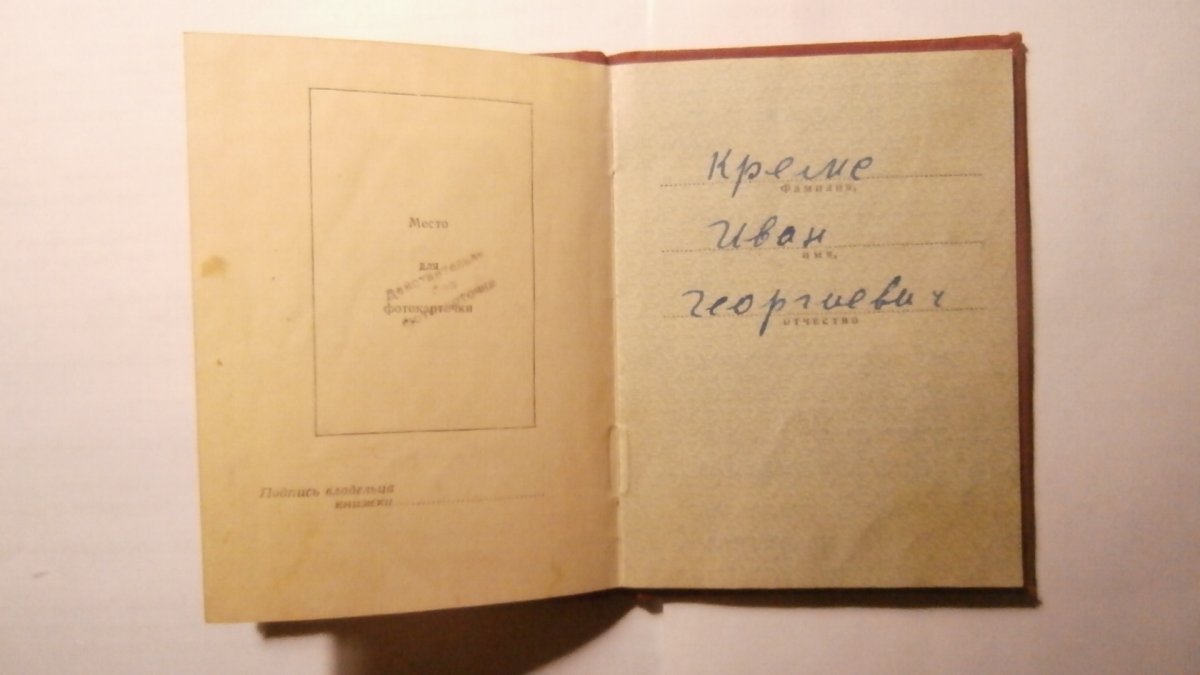 Место
для
фотокарточки
Действительно
без
фотокарточки
Подпись владельца
книжки
Креме
Фамилия,
Иван
имя,
Георгиевич
отчество